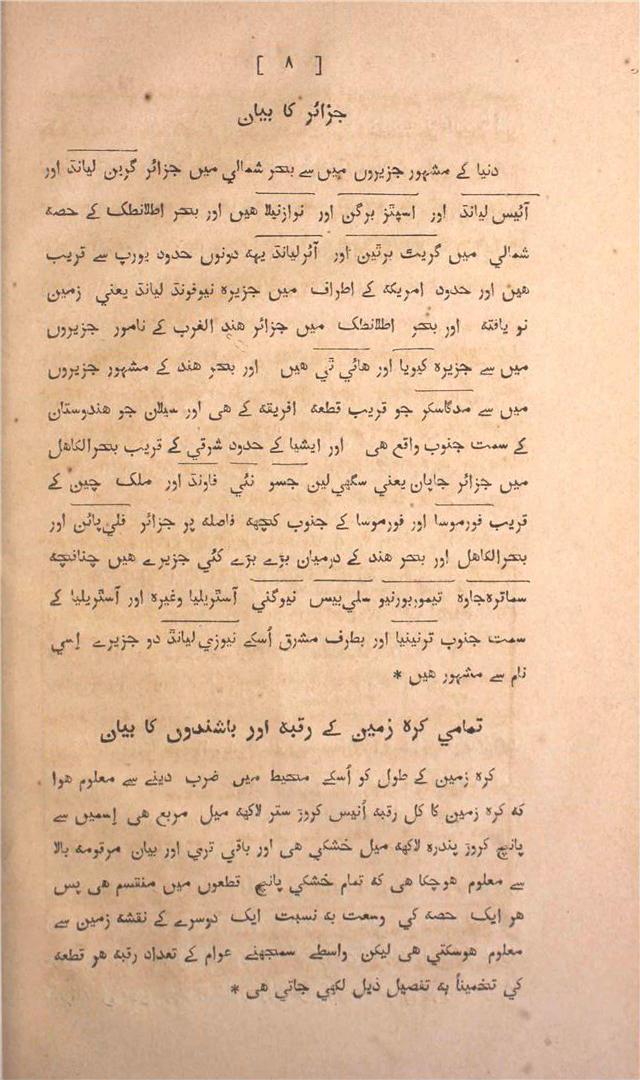 [ ۸ ]
جزائر کا بیان
دنیا کے مشہور جزیروں میں سے بحر شمالي میں جزائر گرین لیانڈ اور
آئیس لیانڈ اور اسپٹز برگن اور نوازنیلا هیں اور بحر اطلانطک کے حصه
شمالي میں گریٹ برٹین اور آئرلیانڈ یهه دونوں حدود یورپ سے قریب
هیں اور حدود امریکه کے اطراف میں جزیره نیوفونڈ لیانڈ یعني زمین
نو یافته اور بحر اطلانطک میں جزائر هند الغرب کے نامور جزیروں
میں سے جزیره کیوبا اور هائي ٹي هیں اور بحر هند کے مشہور جزیروں
میں سے مدگاسکر جو قریب قطعه افریقه کے هی اور سیلان جو هندوستان
کے سمت جنوب واقع هی اور ایشیا کے حدود شرقي کے قریب بحرالکاهل
میں جزائر جاپان یعني سگهي لین جسو نئي فاونڈ اور ملک چین کے
قریب فورموسا اور فورموسا کے جنوب کچهه فاصله پر جزائر فلي پائن اور
بحرالکاهل اور بحر هند کے درمیان بڑے بڑے کئي جزیرے هیں چنانچه
سماتره جاوه تیمور بورنیو سلي بیس نیوگني آسٹریلیا وغیره اور آسٹریلیا کے
سمت جنوب ترنینیا اور بطرف مشرق اُسکے نیوزي لیانڈ دو جزیرے اِسي
نام سے مشہور هیں *
تمامي کره زمین کے رقبه اور باشندوں کا بیان
کره زمین کے طول کو اُسکے محیط میں ضرب دینے سے معلوم هوا
که کره زمین کا کل رقبه اُنیس کروڑ ستر لاکهه میل مربع هی اِسمیں سے
پانچ کروڑ پندره لاکهه میل خشکي هی اور باقي تري اور بیان مرقومه بالا
سے معلوم هوچکا هی که تمام خشکي پانچ قطعوں میں منقسم هی پس
هر ایک حصه کي وسعت به نسبت ایک دوسرے کے نقشه زمین سے
معلوم هوسکتي هی لیکن واسطے سمجهنے عوام کے تعداد رقبه هر قطعه
کي تخمیناً به تفصیل ذیل لکهي جاتي هی *